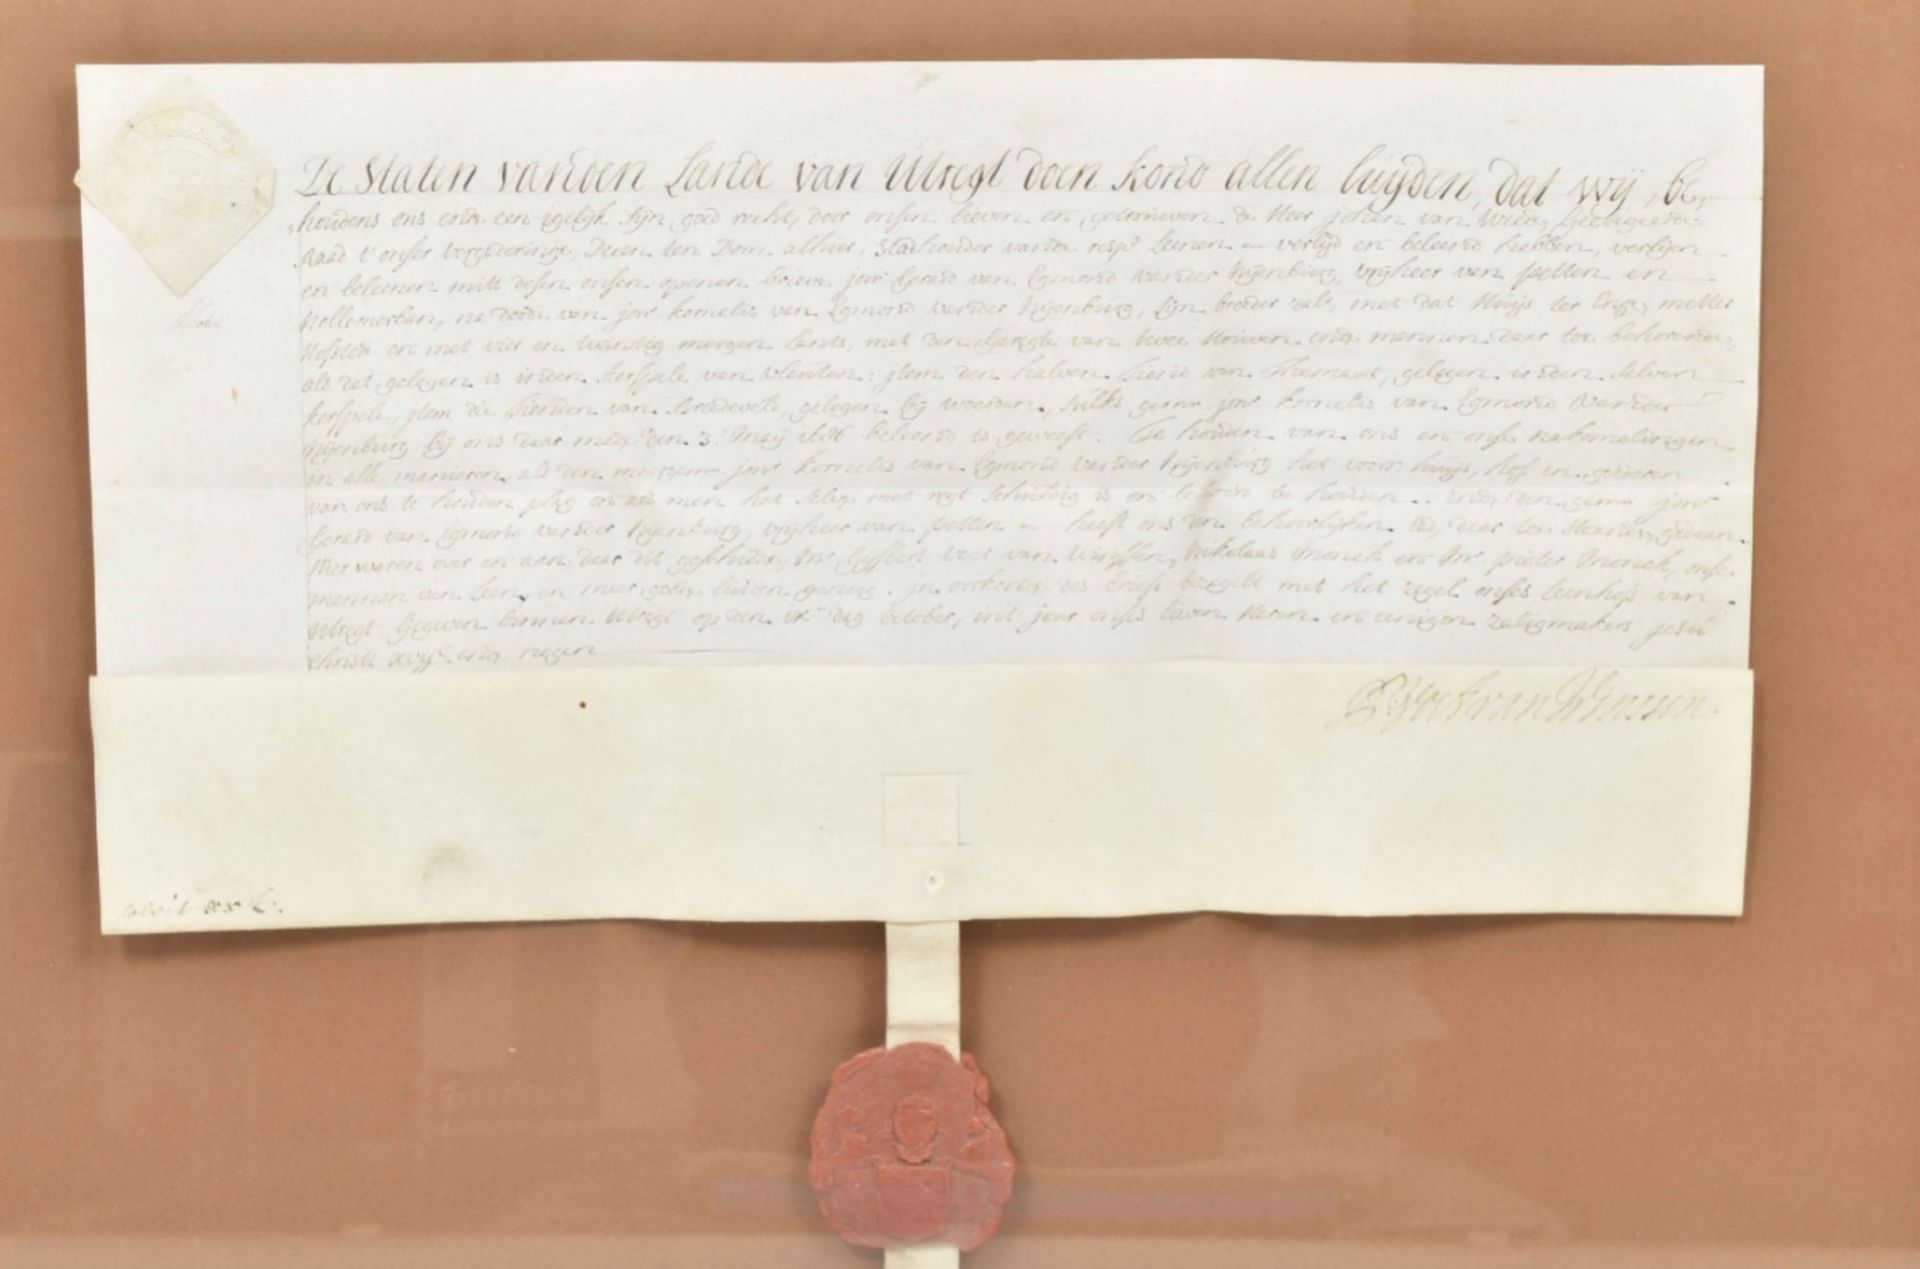 De Staten vanden Lande van Utregt doen kond allen luyden, dat wij, be,
houdens ons ende een igelijk sijn goed recht, door onsen lieven en getrouwen de Heer Johan van Weede, Gedeputeerde
Raad t' onser vergadering, Deken ten Dom alhier, Stadhouder vande resp. Leenen verlijd en beleend hebben, verlijen
en beleenen mitt desen onsen openen brieve jonr Gerard van Egmond vander Nijenburg, vrijheer van petten en
Nollemerban, na doode van jonr kornelis van Egmond vander Nijenburg, sijn broeder zalr, met dat Huijs ter Enge, metter
Hofstede en met vier en twintig mergen Lants, met den Geregte van twee Houven ende mannen daar toe behorende,
als dat gelegen is inden kerspele van vleuten: jtem den halven tiend van Themaat, gelegen inden selven
kerspele, jtem die tienden van Breedevelt, gelegen bij woerden, sulks gemr jonr kornelis van Egmond vander
Nijenburg bij ons daar mede den 3. Maij beleend is geweest. Te houden van ons en onse nakomelingen
in alle manieren als den meergemr jonr kornelis van Egmond vander Nijenburg het voorsr huijs, hof en goederen
van ons te houden plag en als men het selve met regt schuldig is en behoord te houden. ende den gemr jonr
Gerard van Egmond vander Nijenburg, vrijheer van petten heeft ons den behoorlijken Eed daar toe staande gedaan.
Hier waren over en aen daar dit geschiede, Mr Gijsbert Voet van Winssen, Nikolaas Monick en Mr pieter Monick, onse
mannen van leen, en meer goede luiden genoeg. jn oirkonde des briefs bezegelt met het zegel onses leenhofs van
Utregt. Gegeven binnen Utregt op den dag October, int jaar onses lieven Heren en eenigen zaligmakers jesu
christi ende negen
G Voet van Winssen
solvit xx